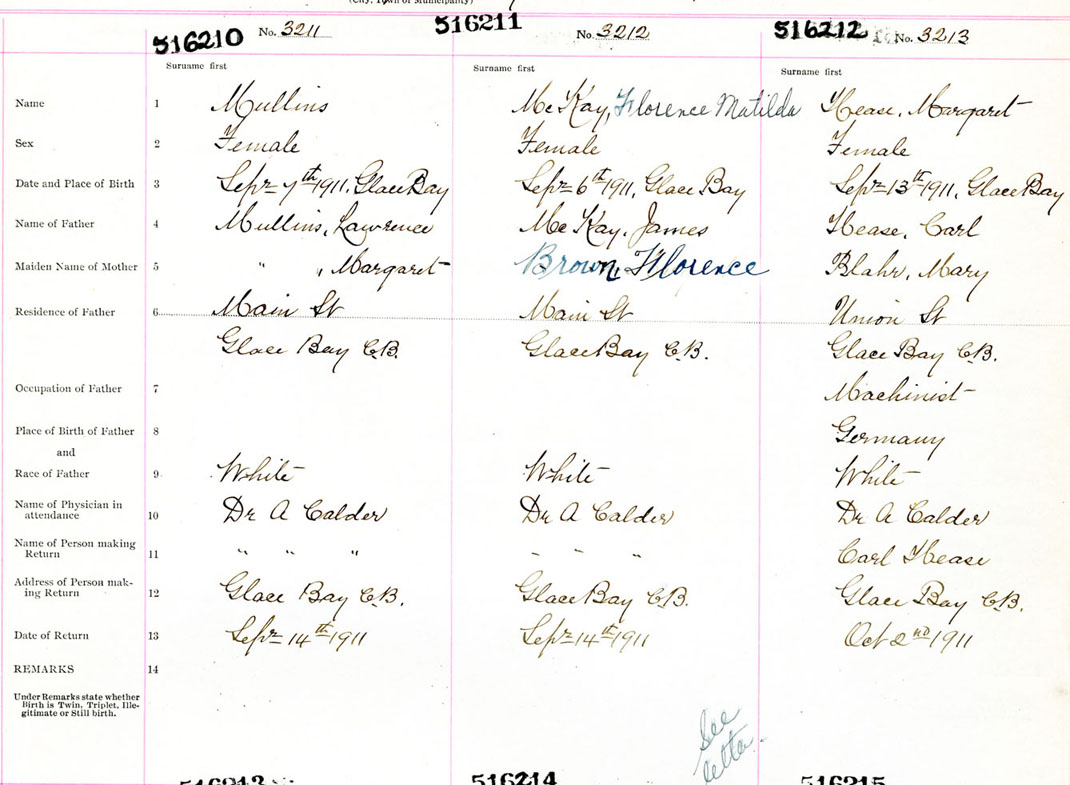 (City, Town or Municipality)
516210 No. 3211 516211 No. 3212 516212 No. 3213
Surname first Surname first Surname first
Name 1 Mullins McKay, Florence Matilda Hease, Margaret
Sex 2 Female Female Female
Date and Place of Birth 3 Sepr 7th 1911, Glace Bay Sepr 6th 1911, Glace Bay Sepr 13th 1911, Glace Bay
Name of Father 4 Mullins, Lawrence McKay, James Hease, Carl
Maiden Name of Mother 5 " " Margaret Brown, Florence Blahr, Mary
Residence of Father 6 Main St Main St Union St
Glace Bay C.B. Glace Bay C.B. Glace Bay C.B.
Occupation of Father 7 Machinist
Place of Birth of Father 8 Germany
and
Race of Father 9 White White White
Name of Physician in
attendance 10 Dr A Calder Dr A Calder Dr A Calder
Name of Person making
Return 11 " " " " " " Carl Hease
Address of Person mak-
ing Return 12 Glace Bay C.B. Glace Bay C.B. Glace Bay C.B.
Date of Return 13 Sepr 14th 1911 Sepr 14th 1911 Oct 2nd 1911
REMARKS 14
Under Remarks state whether
Birth is Twin, Triplet, Ille-
gitimate or Still birth.
See
letter
516213 516214 516215